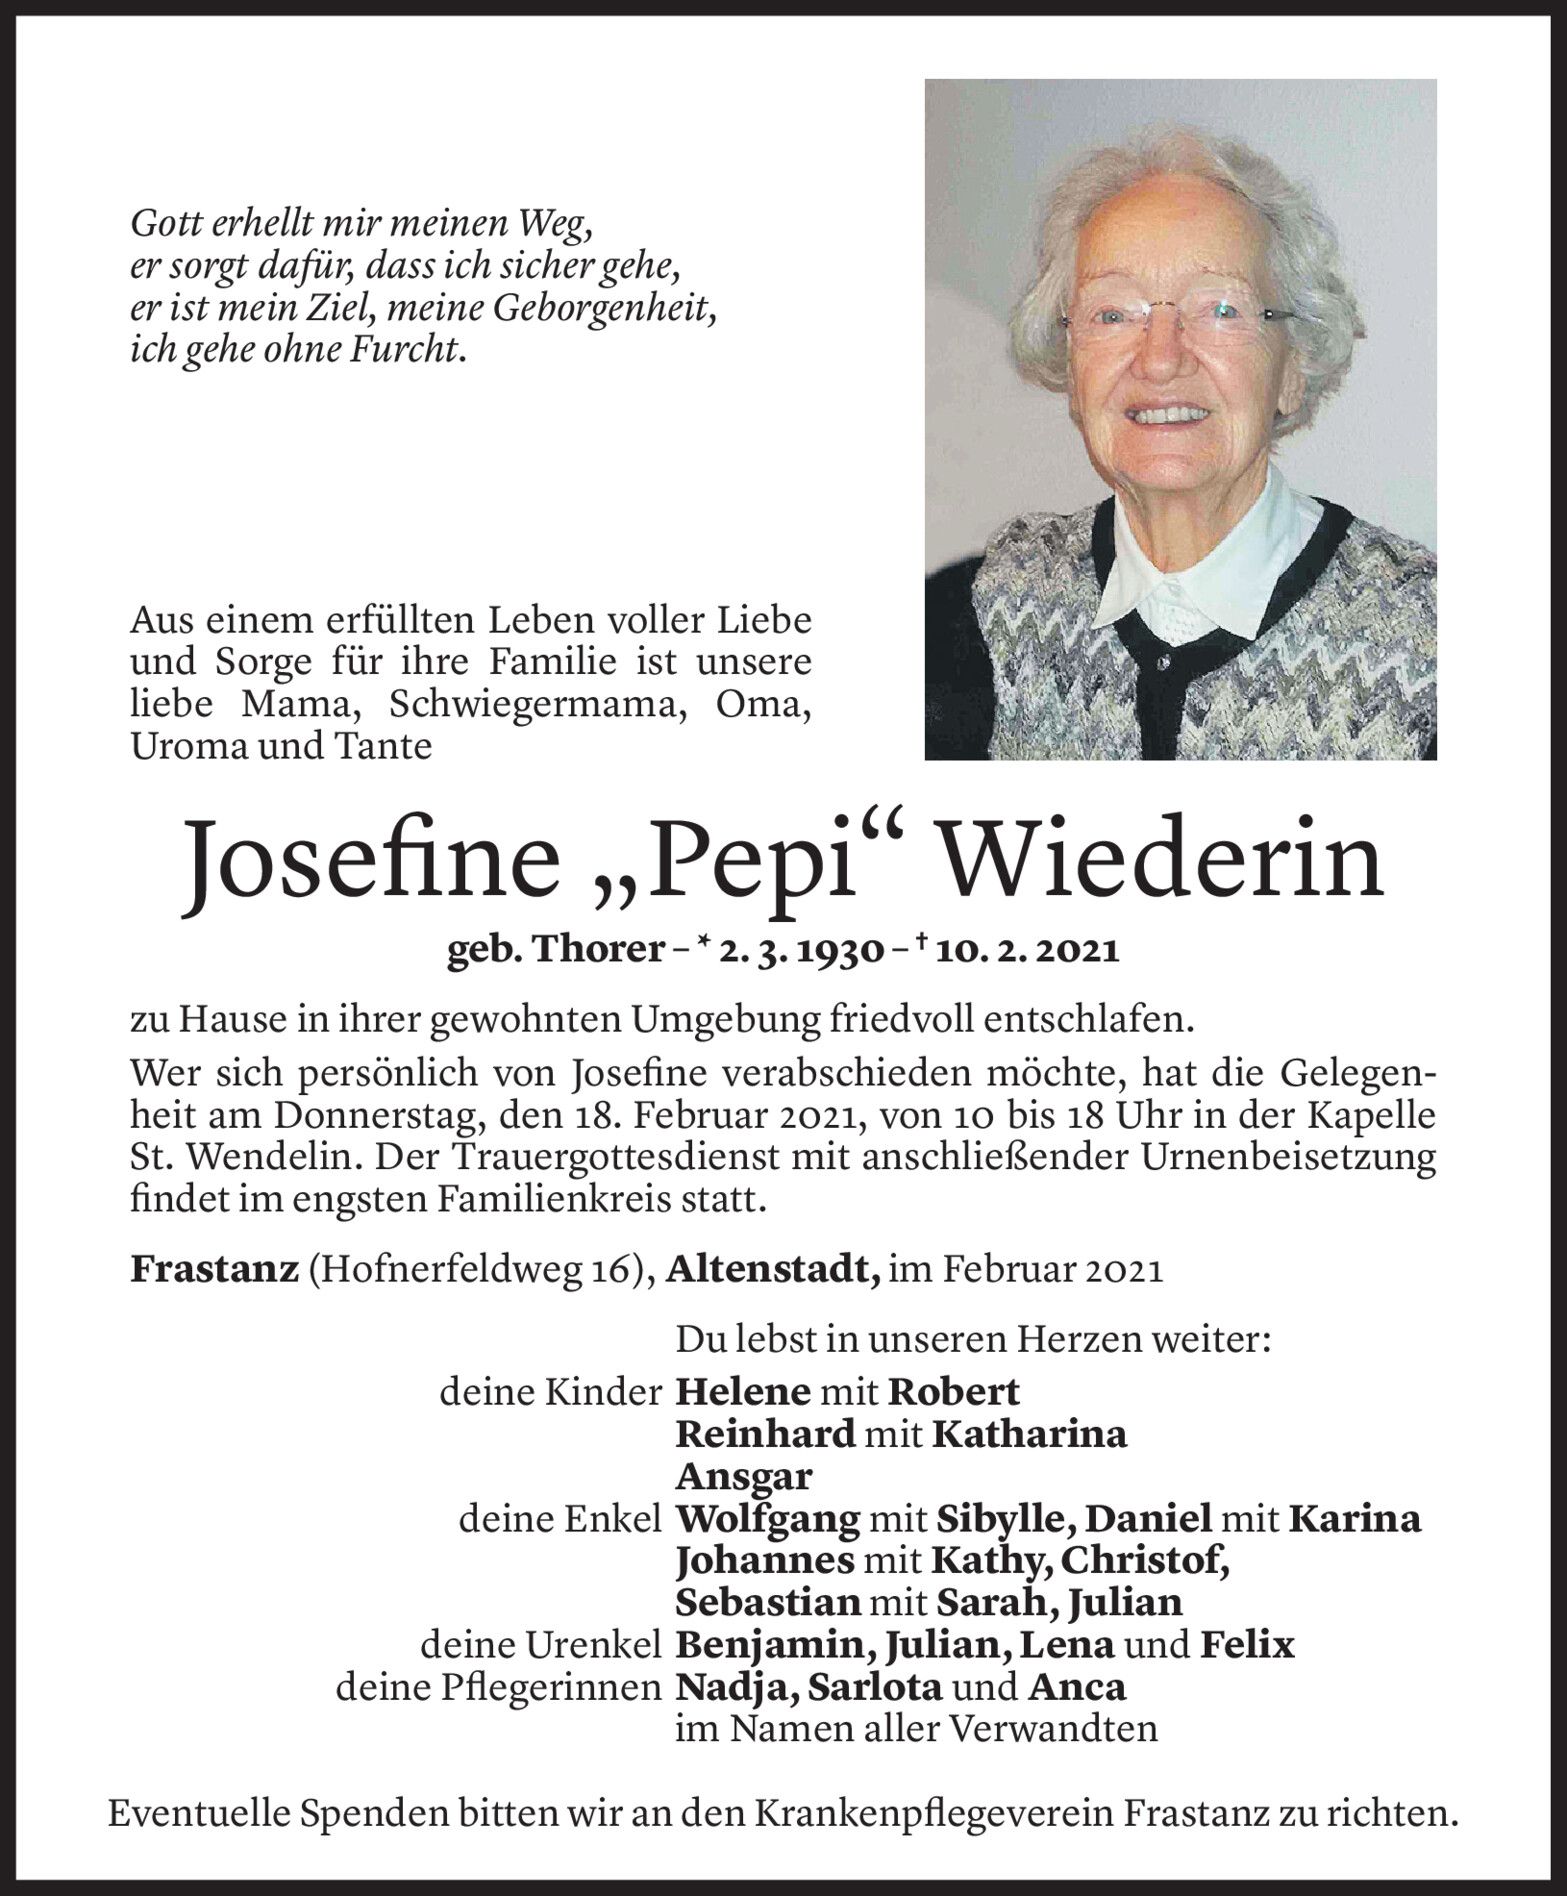 Gott erhellt mir meinen Weg,
er sorgt dafür, dass ich sicher gehe,
er ist mein Ziel, meine Geborgenheit,
ich gehe ohne Furcht.
Aus einem erfüllten Leben voller Liebe
und Sorge für ihre Familie ist unsere
liebe Mama, Schwiegermama, Oma,
Uroma und Tante
Josefine „Pepi“ Wiederin
geb. Thorer – * 2. 3. 1930 – † 10. 2. 2021
zu Hause in ihrer gewohnten Umgebung friedvoll entschlafen.
Wer sich persönlich von Josefine verabschieden möchte, hat die Gelegen-
heit am Donnerstag, den 18. Februar 2021, von 10 bis 18 Uhr in der Kapelle
St. Wendelin. Der Trauergottesdienst mit anschließender Urnenbeisetzung
findet im engsten Familienkreis statt.
Frastanz (Hofnerfeldweg 16), Altenstadt, im Februar 2021
Du lebst in unseren Herzen weiter:
deine Kinder Helene mit Robert
Reinhard mit Katharina
Ansgar
deine Enkel Wolfgang mit Sibylle, Daniel mit Karina
Johannes mit Kathy, Christof,
Sebastian mit Sarah, Julian
deine Urenkel Benjamin, Julian, Lena und Felix
deine Pflegerinnen Nadja, Sarlota und Anca
im Namen aller Verwandten
Eventuelle Spenden bitten wir an den Krankenpflegeverein Frastanz zu richten.